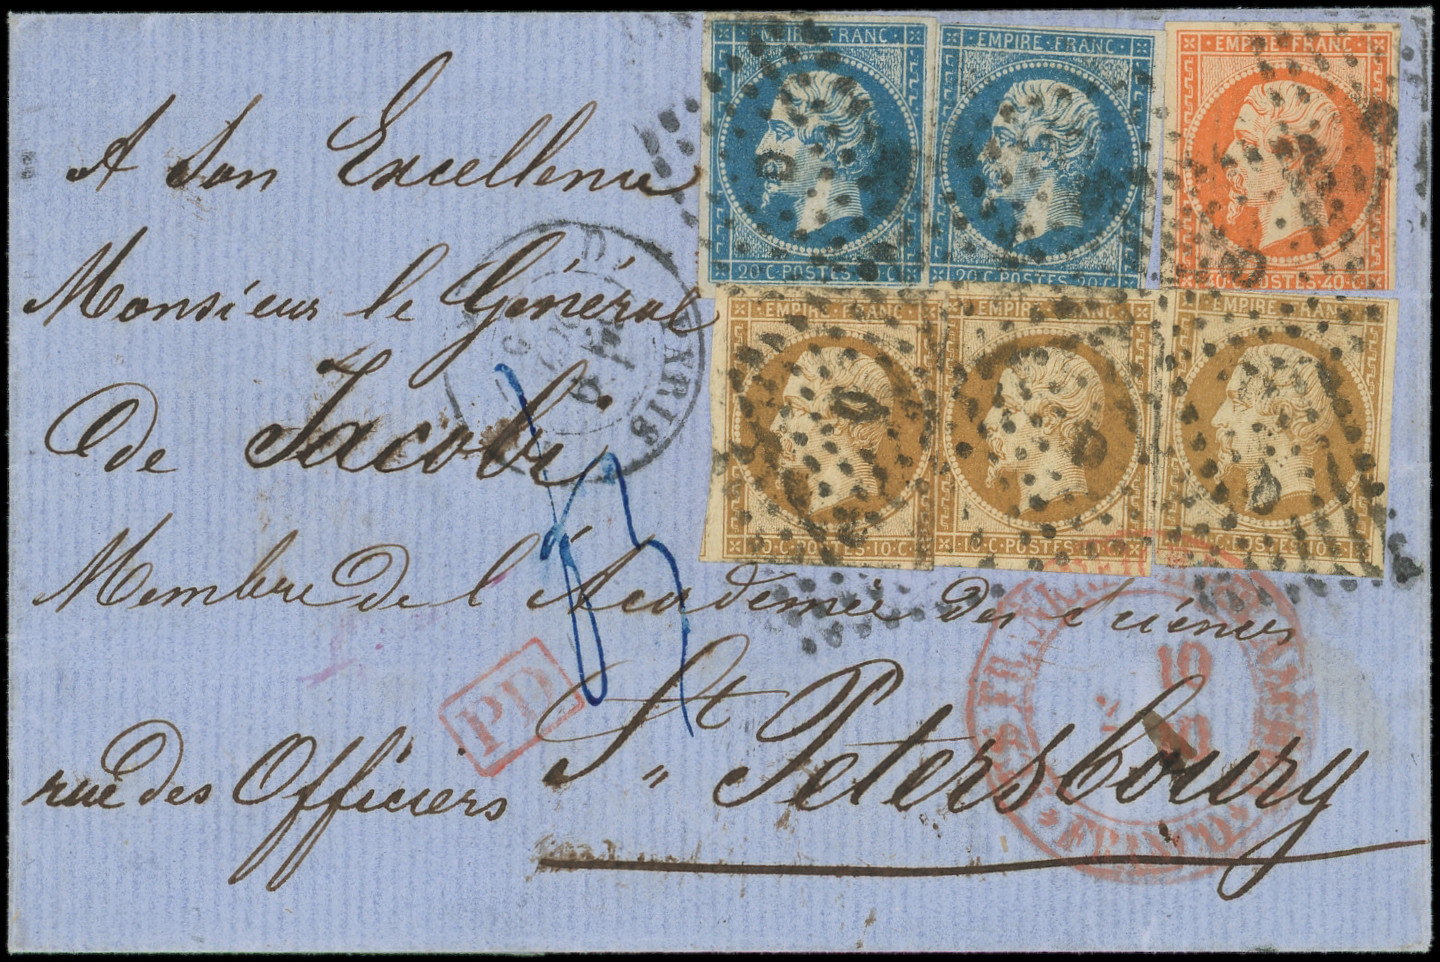 EMPIRE · FRANC
EMPIRE · FRANC
EMPIRE · FRANC
20 · C · POSTES · C
20 · C · POSTES · 20 · C
40 · C · POSTES · 40 · C
EMPIRE · FRANC
EMPIRE · FRANC
EMPIRE · FRANC
10 · C · POSTES · 10 · C
10 · C · POSTES · 10
POSTES · 10 · C
A Son Excellence
Monsieur le Général
de Jacobi
Membre de l'Académie des Sciences
St Petersbourg
rue des Officiers
PARIS
PD
FRANCO